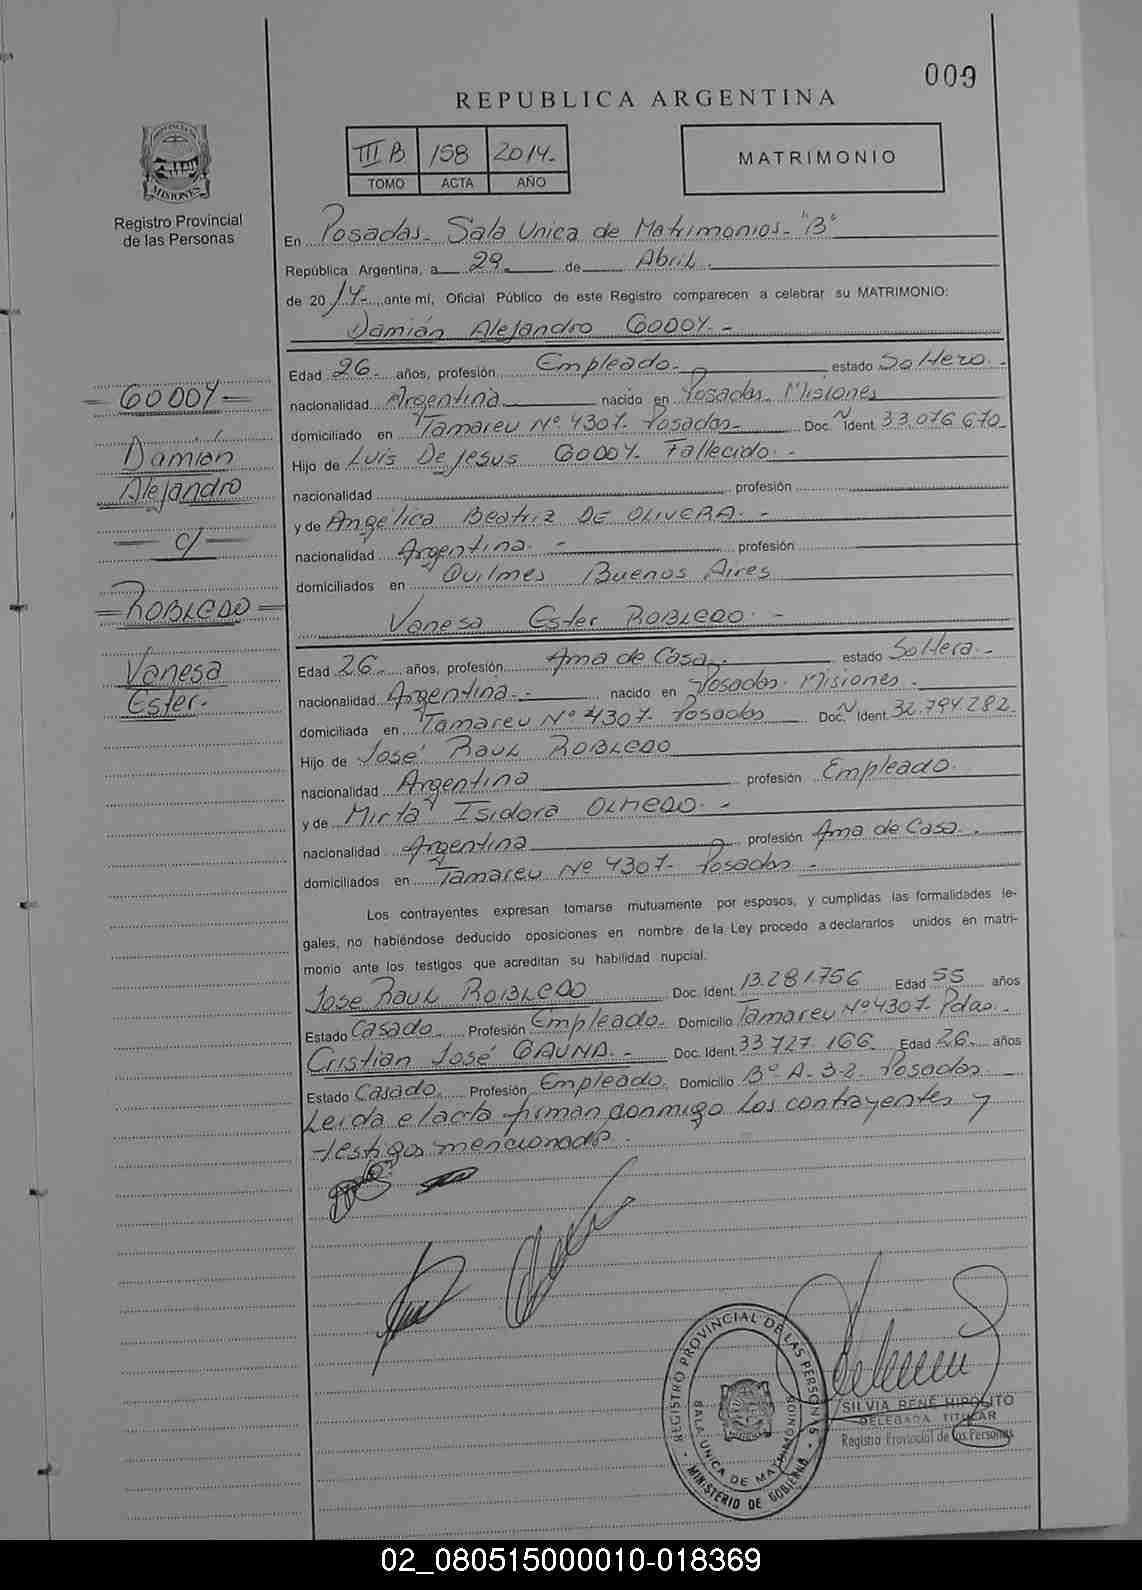 009
REPUBLICA ARGENTINA
III B 158 2014.-
TOMO ACTA AÑO
MATRIMONIO
PROVINCIA DE
MISIONES
Registro Provincial
de las Personas
En Posadas.- Sala Unica de Matrimonios.- "B"
República Argentina, a 29 de Abril.
de 2014.- ante mí, Oficial Público de este Registro comparecen a celebrar su MATRIMONIO:
Damián Alejandro GODOY.-
Edad 26.- años, profesión Empleado.- estado Soltero.-
GODOY
nacionalidad Argentina nacido en Posadas Misiones
domiciliado en Tamareu Nº 4307.- Posadas Doc. Ident. 33.076.670.-
Damián
Hijo de Luis De Jesus GODOY. Fallecido.-
Alejandro
nacionalidad profesión
y de Angélica Beatriz DE OLIVERA.-
c/
nacionalidad Argentina.- profesión
domiciliados en Quilmes Buenos Aires
ROBLEDO
Vanesa Ester ROBLEDO.-
Edad 26.- años, profesión Ama de Casa.- estado Soltera.-
Vanesa
nacionalidad Argentina.- nacido en Posadas. Misiones.
Ester.-
domiciliada en Tamareu Nº 4307.- Posadas Doc. Ident. 32.794.282.
Hijo de José Raul ROBLEDO
nacionalidad Argentina profesión Empleado.
y de Mirta Isidora OLMEDO.-
nacionalidad Argentina profesión Ama de Casa.
domiciliados en Tamareu Nº 4307.- Posadas.-
Los contrayentes expresan tomarse mutuamente por esposos, y cumplidas las formalidades le-
gales, no habiéndose deducido oposiciones en nombre de la Ley procedo a declararlos unidos en matri-
monio ante los testigos que acreditan su habilidad nupcial.
Jose Raul ROBLEDO Doc. Ident. 13.281.756 Edad 55 años
Estado Casado. Profesión Empleado. Domicilio Tamareu Nº 4307.- Pdas.-
Cristian José GAUNA.- Doc. Ident. 33.727.166. Edad 26.- años
Estado Casado. Profesión Empleado. Domicilio Bº A-3-2. Posadas.-
Leida el acta firman conmigo los contrayentes y
testigos mencionados.
REGISTRO PROVINCIAL DE LAS PERSONAS
SALA UNICA DE MATRIMONIOS
MINISTERIO DE GOBIERNO
SILVIA RENÉ HIPOLITO
DELEGADA TITULAR
Registro Provincial de las Personas
02_080515000010-018369